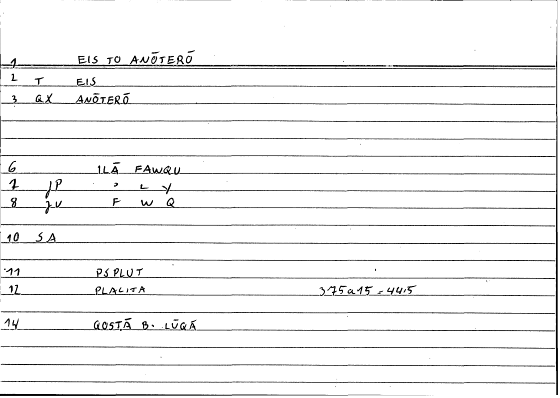 1 EIS TO ANŌTERŌ
2 T EIS
3 QX ANŌTERŌ
6 ILĀ FAWQU
7 JP ʾ L Y
8 JU F W Q
10 SA
11 PSPLUT
12 PLACITA 375a15 = 445
14 QOSṬĀ B. LŪQĀ